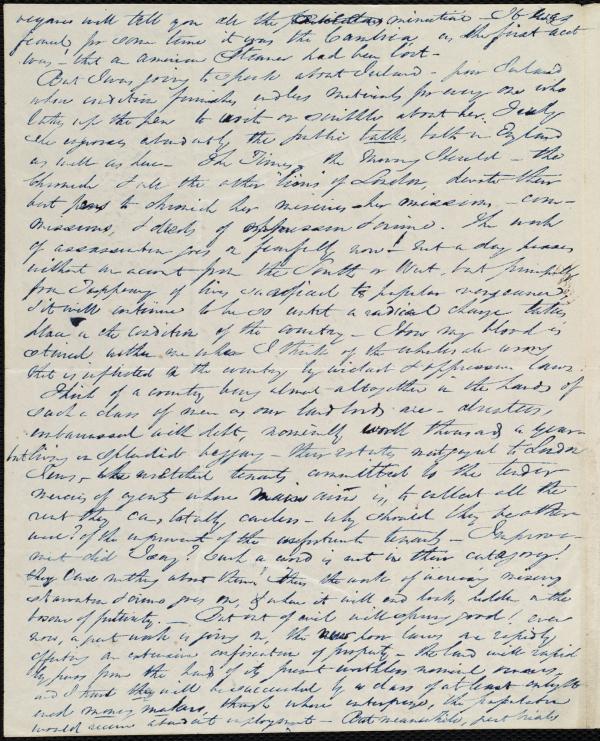 will tell you all the minutiae - It was
feared for some time it was the Cambria as the first acct
was - that an American Steamer had been lost -
But I was going to speak about Ireland - poor Ireland
whose condition furnishes endless materials for every one who
takes up the pen to write or scribble about her. Truly
she occupies abundantly the public talk, both in England
as well as here - The Times, the Morning Herald - the
Chronicle & all the other "lions" of London, devote their
best pens to chronicle her miseries her missions - com-
missions, & deeds of oppression & crime. The work
of assassination goes on fearfully now - not a day passes
without an account from the South or West, but principally
from Tipperary of lives sacrificed to popular vengeance
& it will continue to be so until a radical change takes
place in the condition of the country - How my blood is
stirred within me when I think of the wholesale wrong
that is inflicted on the country by unjust & oppressive laws.
Think of a country being almost altogether in the hands of
such a class of men as our landlords are - absentees,
embarrassed with debt, nominally worth thousands a year
but living in splendid beggary - their estates mortgaged to London
Jews, the wretched tenants committed to the tender
mercies of agents whose main aim is, to collect all the
rent they can, totally careless - why should they be other-
wise? of the improvement of the unfortunate tenantry - Improve-
ment did I say? Such a word is not in their category!
they care nothing about them! Thus the work of increasing misery
starvation & crime goes on, & when it will end looks hidden in the
bosom of futurity. - But out of evil will spring good! even
now, a great work is going on, the new poor laws are rapidly
effecting an extensive confiscation of property - the land will rapid
ly pass from the hands of its present worthless nominal owners,
and I trust they will be succeeded by a class of at least enlight
ened money makers, through whose enterprise, the population
would secure abundant employment - But meanwhile, great trials